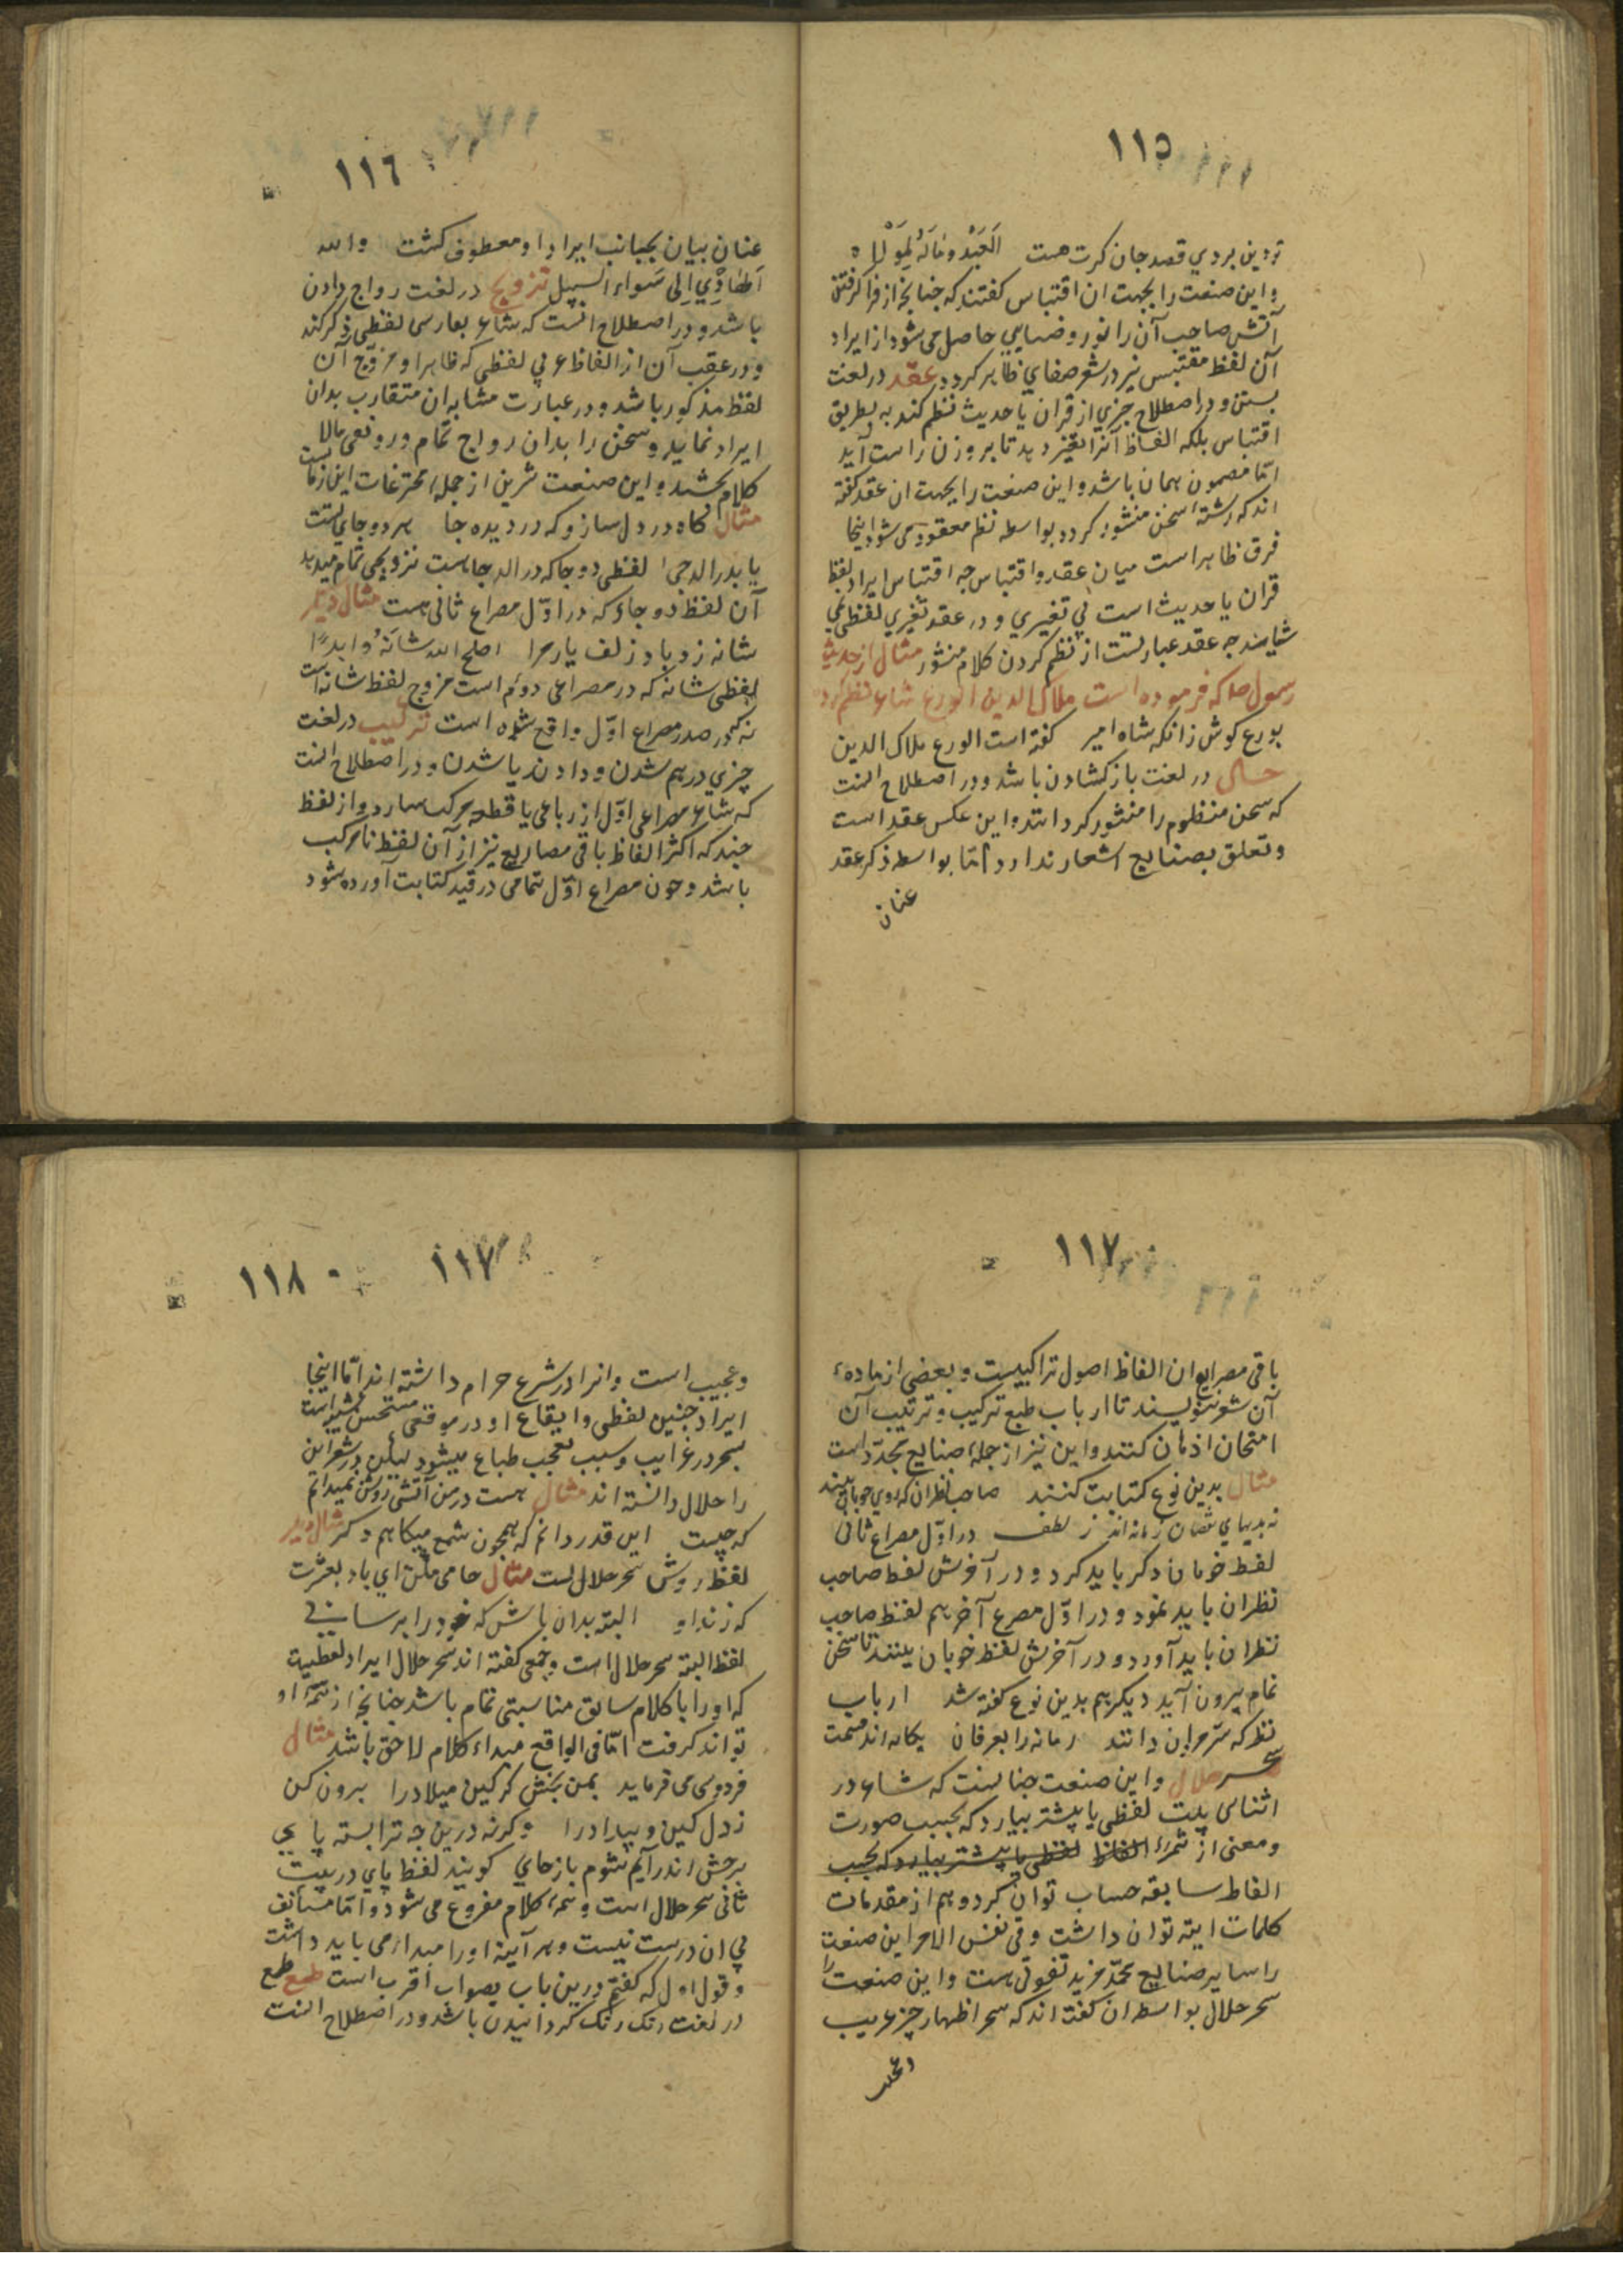 ١١٥
تو دین بردی قصد جان کرت هست العَبْدُ ومَالَهُ لِمَوْلاه
و این صنعت را بجهت ان اقتباس کفتند که چنانچه از فرا کرفتن
آتش صاحب آن را نور و ضیایی حاصل می شود از ایراد
آن لفظ مقتبس نیز در شعر صفای ظاهر کردد عقد در لغت
بستن و در اصطلاح چیزی از قران یا حدیث نظم کند به بطریق
اقتباس بلکه الفاظ آنرا تغیر دهد تا بر وزن راست آید
امّا مضمون همان باشد و این صنعت را بجهت ان عقد کفته
اند که رشته سخن منثور کردد بواسطه نظم معقود می شود اینجا
فرق ظاهر است میان عقد و اقتباس چه اقتباس ایراد لفظ
قران یا حدیث است بی تغیری و در عقد تغیری لفظی می
شاید چه عقد عبارتست از نظم کردن کلام منثور مثال از حدیث
رسول صلا که فرموده است ملاک الدین الورع شاعر نظم کرده
بورع کوش زانکه شاه امیر کفته است الورع ملاک الدین
حل در لغت باز کشادن باشد و در اصطلاح انست
که سخن منظوم را منثور کردانند و این عکس عقد است
و تعلق بصنایع اشعار ندارد امّا بواسطه ذکر عقد
عنان
١١٦
عنان بیان بجانب ایراد او معطوف کشت والله
الهادي الی سَواء السبیل تزویج در لغت رواج دادن
باشد و در اصطلاح انست که شاعر بفارسی لفظی ذکر کند
و در عقب آن از الفاظ عربی لفظی که ظاهرا و مزوّج آن
لفظ مذکور باشد و در عبارت مشابه ان متقارب بدان
ایراد نماید و سخن را بدان رواج تمام و رونقی مالا
کلام بخشد و این صنعت شرین از جمله مخترعات این زمانست
مثال کاه در دل ساز و که در دیده جا هر دو جای تست
یا بدر الدجی لفظی دوجا که در الدجاست تزویجی تمام میدهد
آن لفظ دوجا که در اوّل مصراع ثانی هست مثال دیکر
شانه زد باد زلف یار مرا اصلح الله شانَهُ و ابدًا
لفظی شانه که در مصراعی دوم است مزوج لفظ شانه است
که در صدر مصراع اوّل واقع شده است ترکیب در لغت
چیزی در هم شدن و دادن یا شدن و در اصطلاح انست
که شاعر مصراعی اوّل از رباعی یا قطعه مرکب سازد و از لفظ
چند که اکثر الفاظ باقی مصاریع نیز از آن لفظ نامرکب
باشد و چون مصراع اوّل تمامی در قید کتابت آورده شود
١١٧
باقی مصرایع ان الفاظ اصول تراکیبست و بعضی از ماده
آن شعر بنویسند تا ارباب طبع ترکیب و ترتیب آن
امتحان اذهان کنند و این نیز از جمله صنایع مجدّد است
مثال بدین نوع کتابت کنند صاحب نظران که روی خوبان بینند
در اوّل مصراع ثانی
لفظ خوبان ذکر باید کرد و در آخرش لفظ صاحب
نظران باید نمود و در اوّل مصرع آخر هم لفظ صاحب
نظران باید آورد و در آخرش لفظ خوبان بینند تا سخن
تمام بیرون آید دیکر هم بدین نوع کفته شد ارباب
نظر که سرّ دانند زمانه را بعرفان یکانه اند
سحر حلال و این صنعت چنانست که شاعر در
اثنای بیت لفظی یا پیشتر بیارد که بحسب صورت
و معنی از ثمره الفاظ لفظی یا پیشتر بیارد که بحسب
الفاظ سابقه حساب توان کرد و هم از مقدمات
کلمات اتیه توان داشت و فی نفس الامر این صنعت
را سایر صنایع مجدّد مزید تفوقی هست و این صنعت را
سحر حلال بواسطه ان کفته اند که سحر اظهار چیز غریب
وعجیب
١١٧ ١١٨
وعجیب است و انرا در شرع حرام داشته اند امّا اینجا
ایراد چنین لفظی و ایقاع او در موقعی مستحسن
سحر در غرایب و سبب تعجب طباع میشود لیکن در شعر این
را حلال دانسته اند مثال هست در من آتشی روشن نمیدانم
که چیست این قدر دانم که همچون شمع میکاهم دکر مثال دیکر
لفظ روشن سحر حلالست مثال خامی مکن ای باد بعشرت
که زند او البته بدان باش که خود را برسانی
لفظ البته سحر حلال است و جمعی کفته اند سحر حلال ایراد لفظیست
که او را با کلام سابق مناسبتی تمام باشد چنانچه از تتمّه او
تواند کرفت امّا فی الواقع مبداء کلام لاحق باشد مثال
فردوسی می فرماید بمن بخش کرکین میلاد را برون کن
ز دل کین و بیداد را وکرنه درین چه ترا بسته پای
برخش اندر آیم شوم باز جای کویند لفظ پای در بیت
ثانی سحر حلال است و تتمه کلام مفروغ می شود و امّا مستانف
بی ان درست نیست و هر آینه او را مبداء می باید داشت
و قول اول که کفتم درین باب بصواب اقرب است ملمع
در لغت رنک رنک کردانیدن باشد و در اصطلاح انست